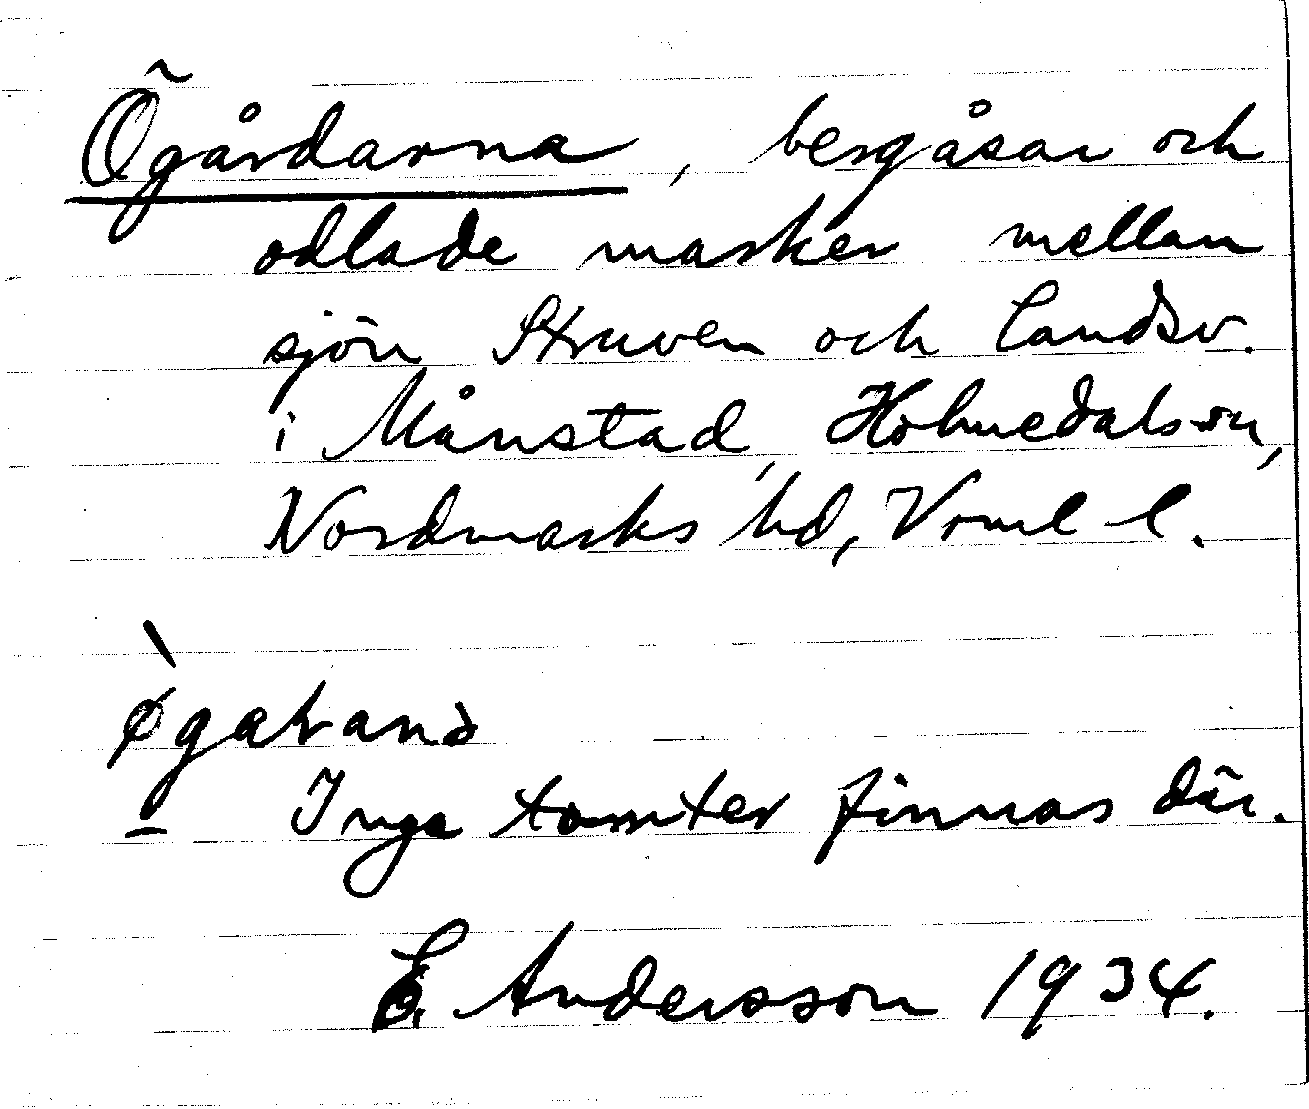 Ögårdarna, bergåsar och
odlade marker mellan
sjön Struven och landsv.
i Månstad, Holmedals sn,
Nordmarks hd, Vrml l.
Inga tomter finnas där.
E. Andersson 1934.